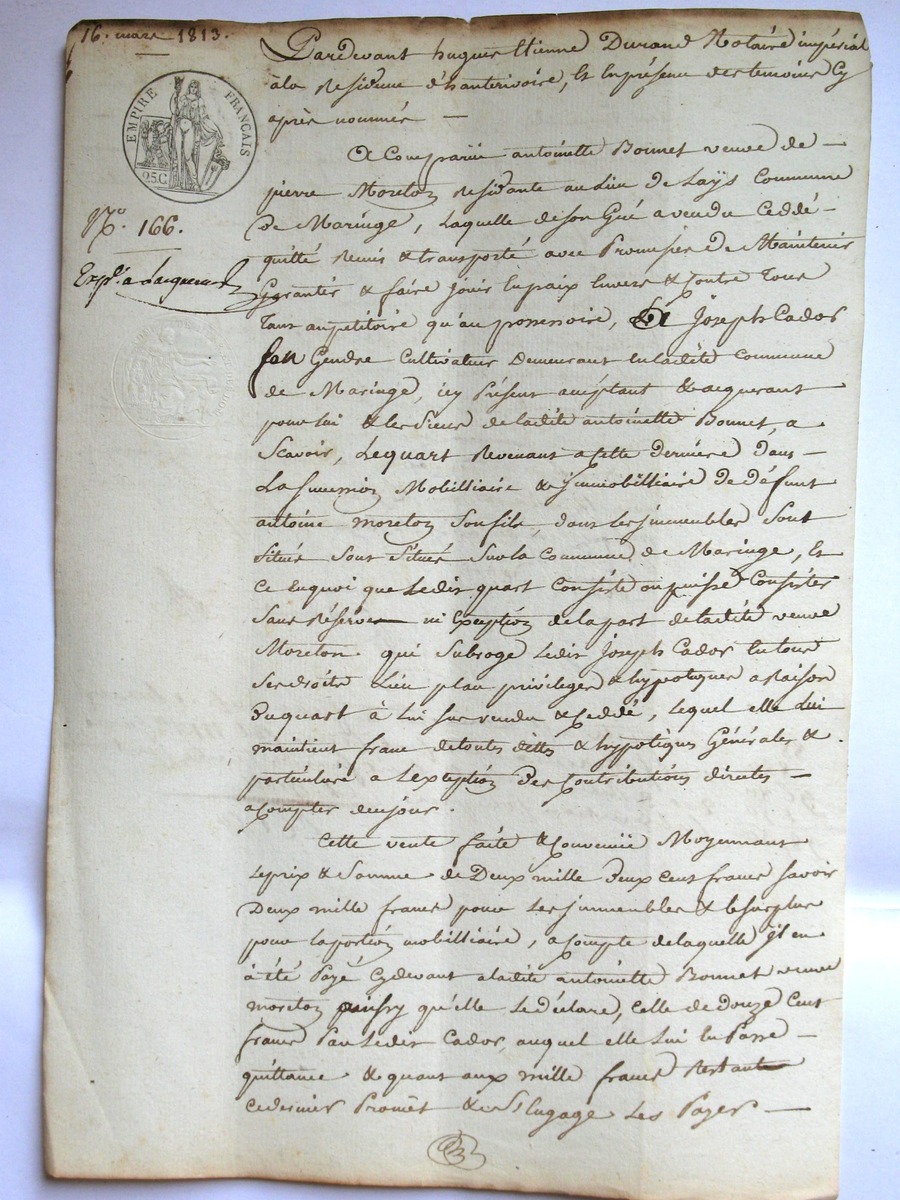 16. mars 1813.
EMPIRE FRANÇAIS
25.C
N.º 166.
Exp.é a lacquereur
Pardevant hugues Etienne Durand Notaire impérial
à la Residence d'hauterivoire, Et en présence des temoins Cy
après nommés —
A Comparüe antoinette Bonnet veuve de —
pierre Moreton residante au Lieu de Laÿs Commune
de Maringe, Laquelle de son Gré a vendu Ceddé —
quitté Remis & transporté avec Promesse de Maintenir
Garantir & faire jouir En paix Envers & Contre Tous
Tant au petitoire qu'au possessoire, A Joseph Cador
son Gendre Cultivateur Demeurant En ladite Commune
de Maringe, icy Présent acceptant & acquerant
pour lui & les siens de ladite antoinette Bonnet, a
Scavoir, Le quart Revenant a Cette derniére dans —
La succession Mobilliaire & jmmobilliaire de défunt
antoine moreton son fils, dont les jmmeubles sont
situés sont situés sur la Commune de Maringe, Et
ce Enquoi que Ledit quart Consiste ou puisse Consister
sans réserve ni Exception de la part de ladite veuve
Moreton qui Subroge Ledit Joseph Cador En tous
ses droits Lieu place privileges & hypotéques a Raison
du quart à Lui sus vendu & Ceddé, Lequel elle Lui
maintient franc de toutes dettes & hypotéques Générales &
particuliére a Lexception des Contributions directes —
a Compter de ce jour.
Cette vente faite & Convenüe Moyennant
Le prix & Somme de Deux mille Deux Cent francs savoir
Deux mille francs pour Les jmmeubles & le surplus
pour la portion mobilliaire, a Compte de laquelle jl en
à été Payé Cydevant a ladite antoinette Bonnet veuve
moreton ainsy qu'elle Le déclare, Celle de Douze Cent
francs Par Ledit Cador, auquel elle Lui En Passe —
quittance & quant aux mille francs Restants
ce dernier Promet & s'Engage Les Payer —